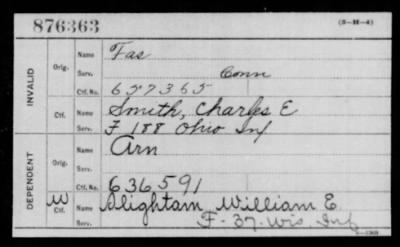 876363 (3-H-4)
INVALID Orig. Name Fas
Serv. Conn
Ctf. No. 657365
Ctf. Name Smith, Charles E
Serv. F 188 Ohio Inf
DEPENDENT Orig. Name Arn
Serv.
Ctf. No. 636,591
W Ctf. Name Slightam, William E.
Serv. F-37-Wis. Inf